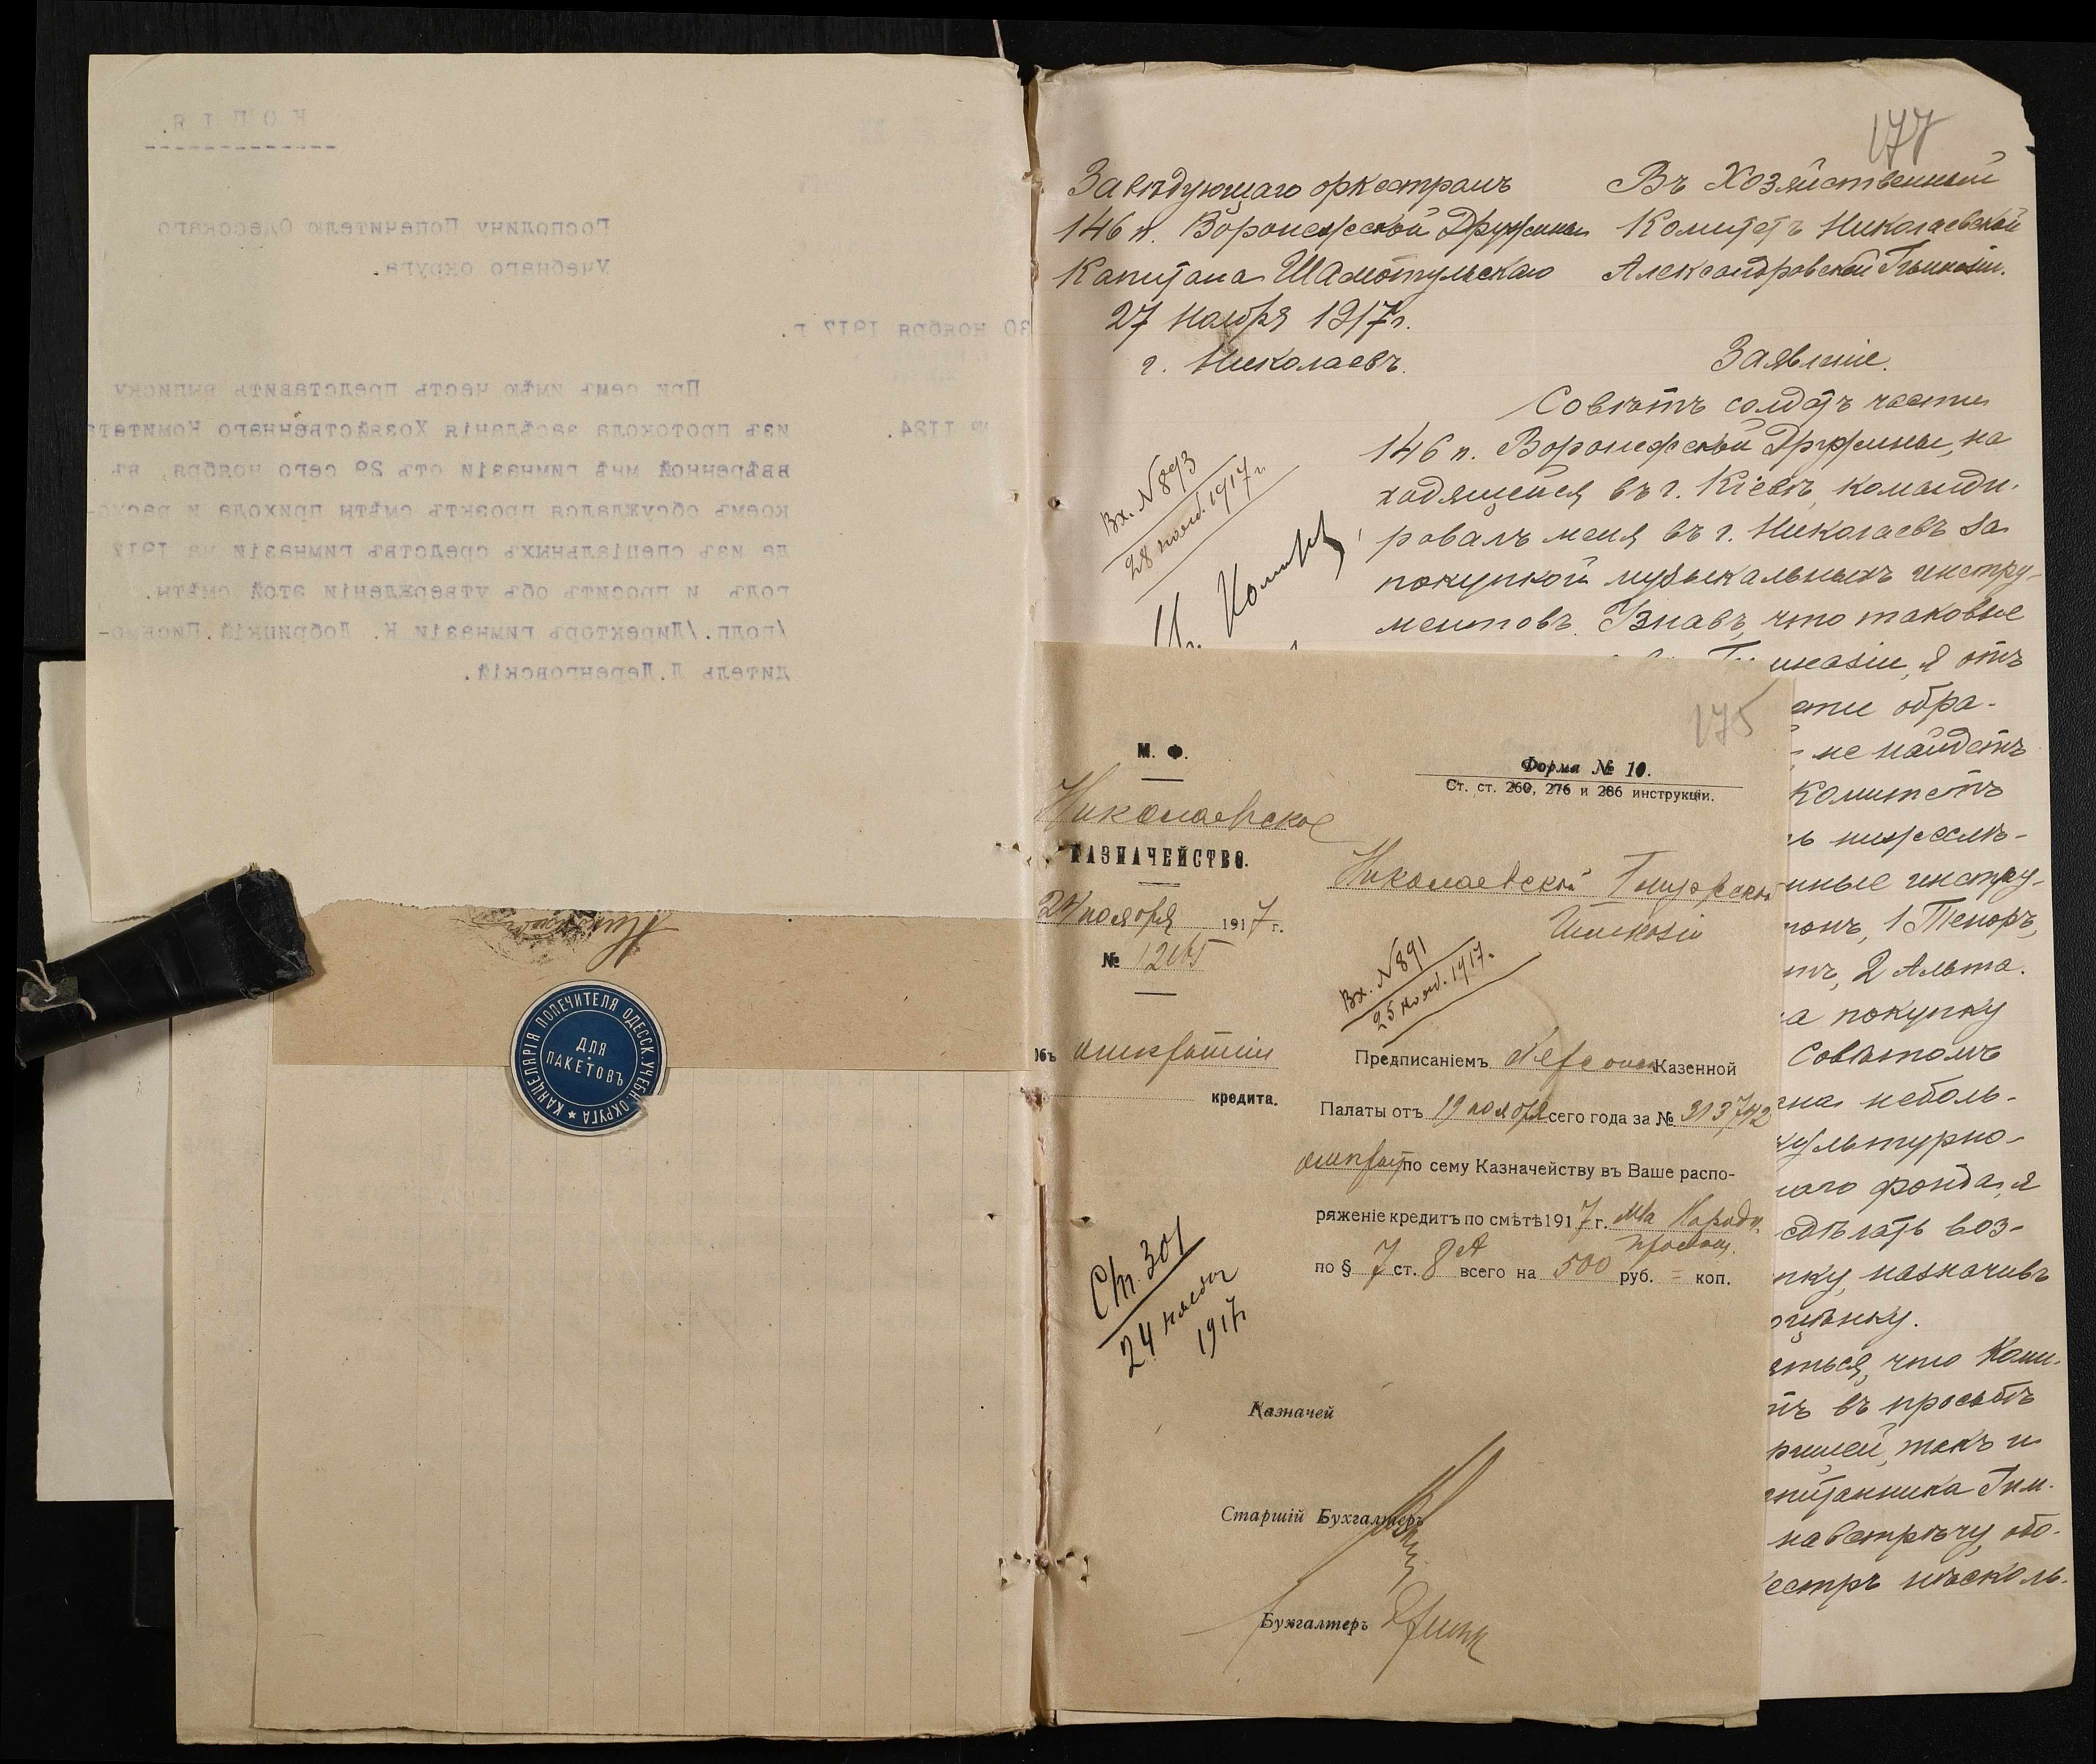 КОПІЯ.
Господину Попечителю Одесскаго
Учебнаго округа.
30 ноября 1917 г.
№ 1124.
При семъ имѣю честь представить выписку
изъ протокола засѣданія Хозяйственнаго Комитета
ввѣренной мнѣ гимназіи отъ 29 сего ноября, въ
коемъ обсуждался проэктъ смѣты прихода и расхо-
да изъ спеціальныхъ средствъ гимназіи на 1917
годъ и проситъ объ утвержденіи этой смѣты.
/подп./Директоръ гимназіи К. Добрицкій.Письмо-
дитель Д.Деренговскій.
КАНЦЕЛЯРІЯ ПОПЕЧИТЕЛЯ ОДЕССК. УЧЕБН. ОКРУГА
ДЛЯ
ПАКЕТОВЪ
177
Завѣдующаго оркестромъ
146 п. Воронежской Дружины
Капитана Шамотульскаго
27 Ноября 1917 г.
г. Николаевъ.
Въ Хозяйственный
Комитетъ Николаевской
Александровской Гимназіи.
Заявленіе.
Совѣтъ солдатъ части
146 п. Воронежской Дружины, на
ходящейся въ г. Кіевѣ, команди-
ровалъ меня въ г. Николаевъ за
покупкой музыкальныхъ инстру-
ментовъ. Узнавъ, что таковые
Вх. № 893
28 нояб. 1917 г.
мназіи, я отъ
обра-
не найдетъ
Комитетъ
нижеслѣ-
нные инстру-
1 Теноръ,
2 Альта.
а покупку
Совѣтомъ
неболь-
культурно-
наго фонда, я
сдѣлать воз-
пку, назначивъ
оцѣнку.
яться, что Коми-
тъ въ просьбѣ
такъ и
питанника Гим-
навстрѣчу, обо-
кестръ нѣсколь-
175
М. Ф.
Николаевское
КАЗНАЧЕЙСТВО.
24 ноября 1917 г.
№
Объ открытіи
кредита.
Форма № 10.
Ст. ст. 260, 276 и 286 инструкціи.
Николаевской
Гимназіи
Вх. № 891
25 нояб. 1917 г.
Предписаніемъ Херсонск Казенной
Палаты отъ 19 ноября сего года за № 313742
открытъ по сему Казначейству въ Ваше распо-
ряженіе кредитъ по смѣтѣ 1917 г. М-ва Народн.
Просвѣщ.
по § 7 ст. 8 всего на 500 руб. = коп.
Ст. 301
24 ноября
1917 г
Казначей
Старшій Бухгалтеръ
Бухгалтеръ